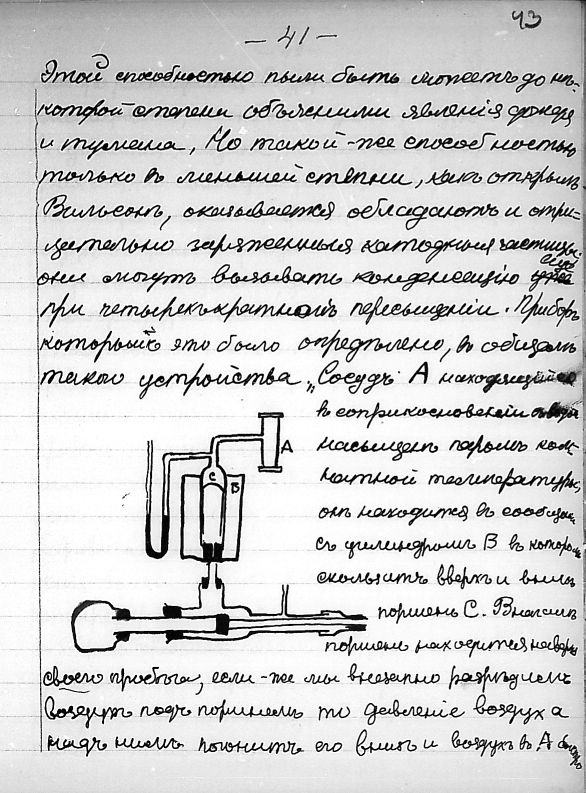 43
— 41 —
Этой способностью пыли быть можетъ до нѣ-
которой степени объяснимы явленія дождя
и тумана, Но такой-же способностью
только въ меньшей степни, какъ открылъ
Вильсонъ, оказывается обладаютъ и отри-
цательно заряженныя катодныя частицы:
они могутъ вызывать конденсацію
при четырехъкратномъ пересыщеніи. Приборъ
которымъ это было опредѣлено, въ общемъ
такого устройства „Сосудъ А находящійся
въ соприкосновеніи съ водой
насыщенъ паромъ ком-
натной температуры,
онъ находится въ сообщен.
съ цилиндромъ В въ которомъ
скользитъ вверхъ и внизъ
поршень С. Вначалѣ
поршень находится наверху
своего пробѣга, если-же мы внезапно разрѣдимъ
воздухъ подъ поршнемъ то давленіе воздуха
надъ нимъ погонитъ его внизъ и воздухъ въ А
А
В
С